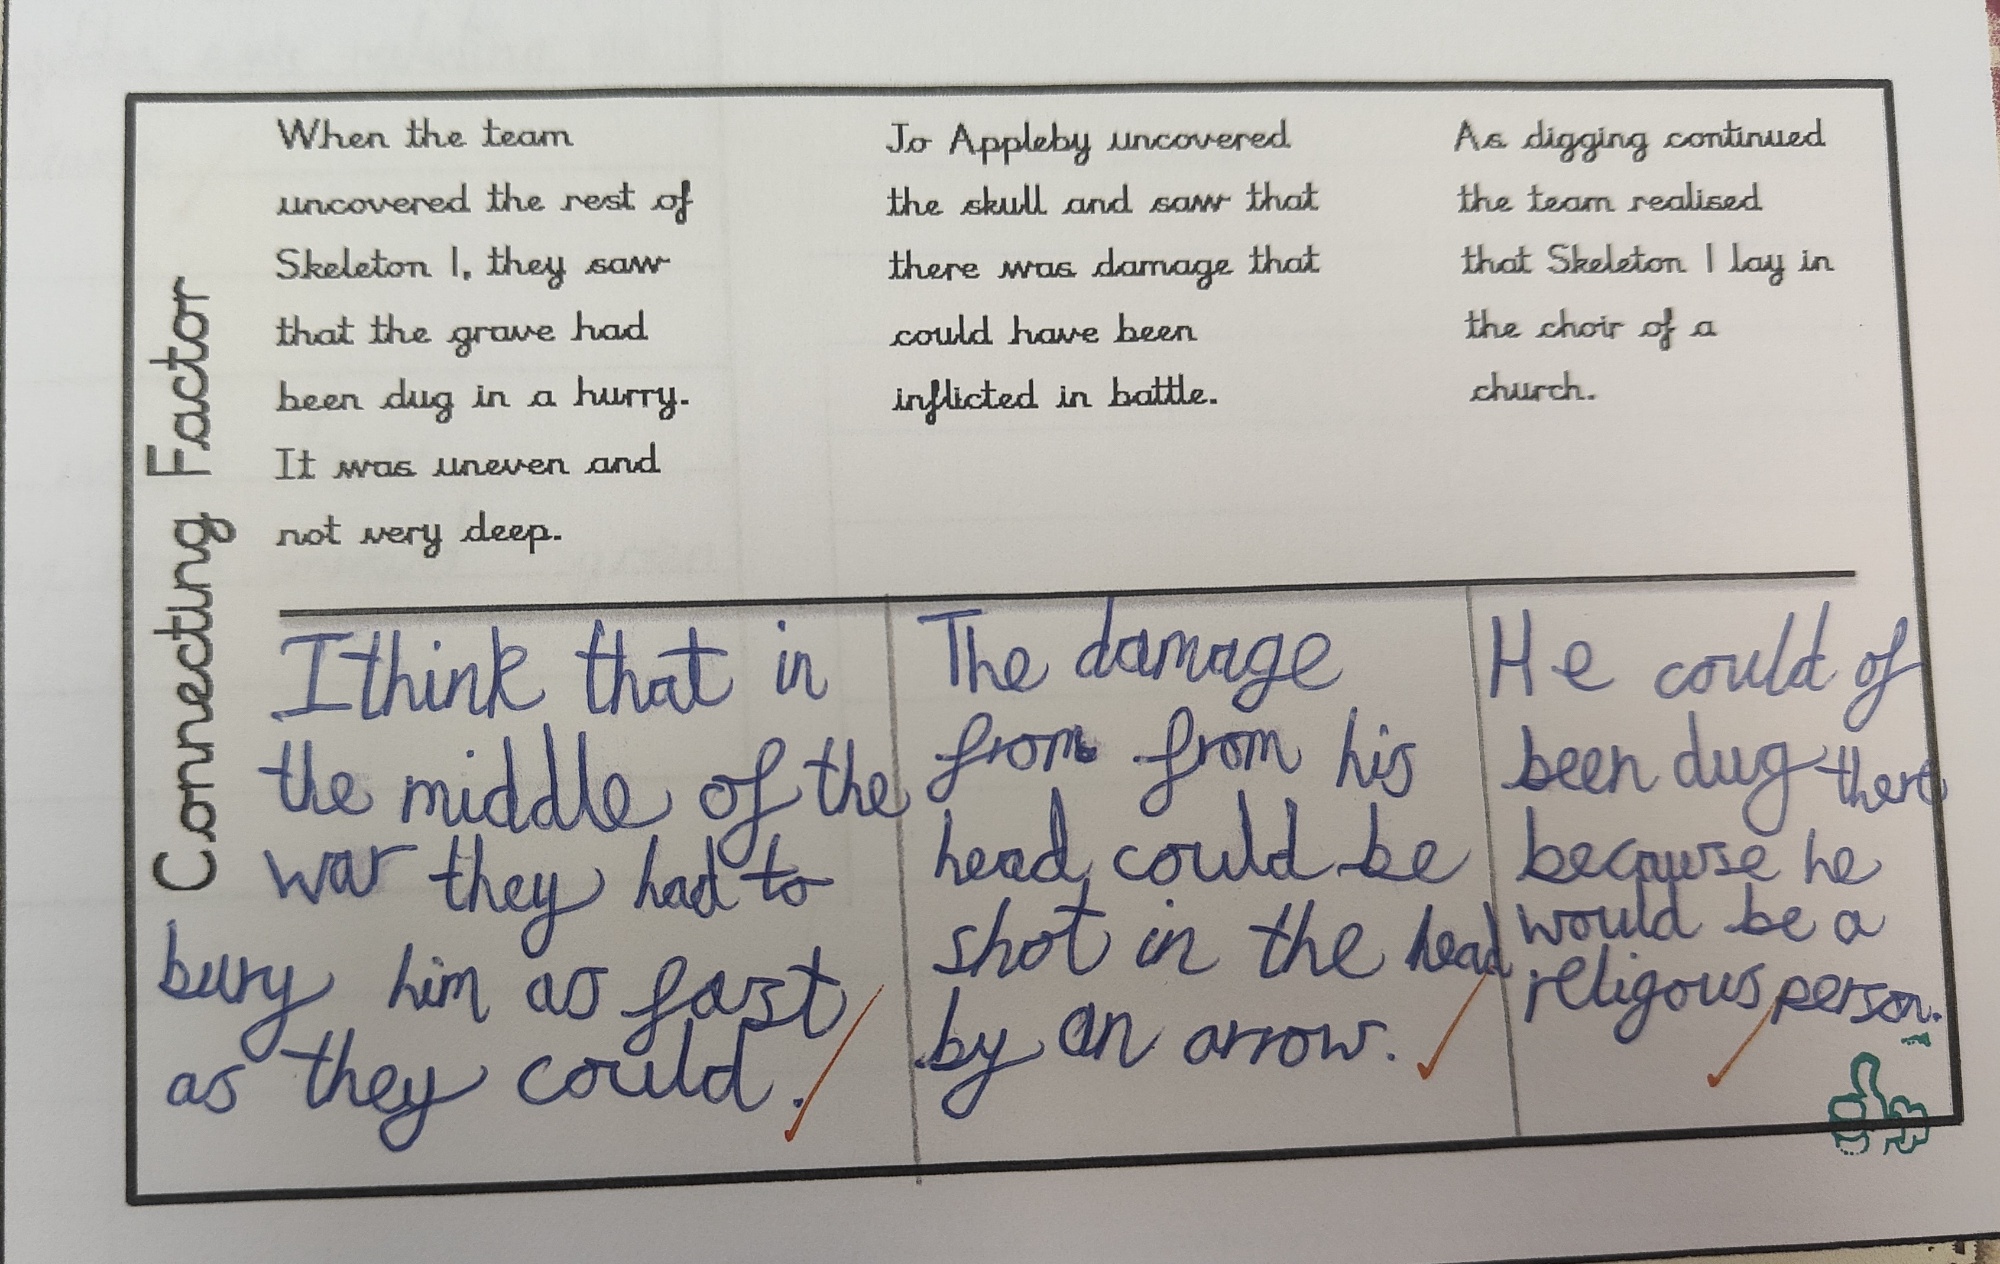 Connecting Factor
When the team
uncovered the rest of
Skeleton 1, they saw
that the grave had
been dug in a hurry.
It was uneven and
not very deep.
Jo Appleby uncovered
the skull and saw that
there was damage that
could have been
inflicted in battle.
As digging continued
the team realised
that Skeleton 1 lay in
the choir of a
church.
I think that in
the middle of the
war they had to
bury him as fast
as they could.
The damage
from from his
head could be
shot in the head
by an arrow.
He could of
been dug there
because he
would be a
religous person.